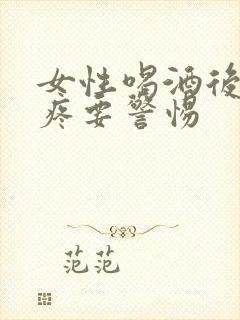 女性喝酒後
疼要警惕
范范